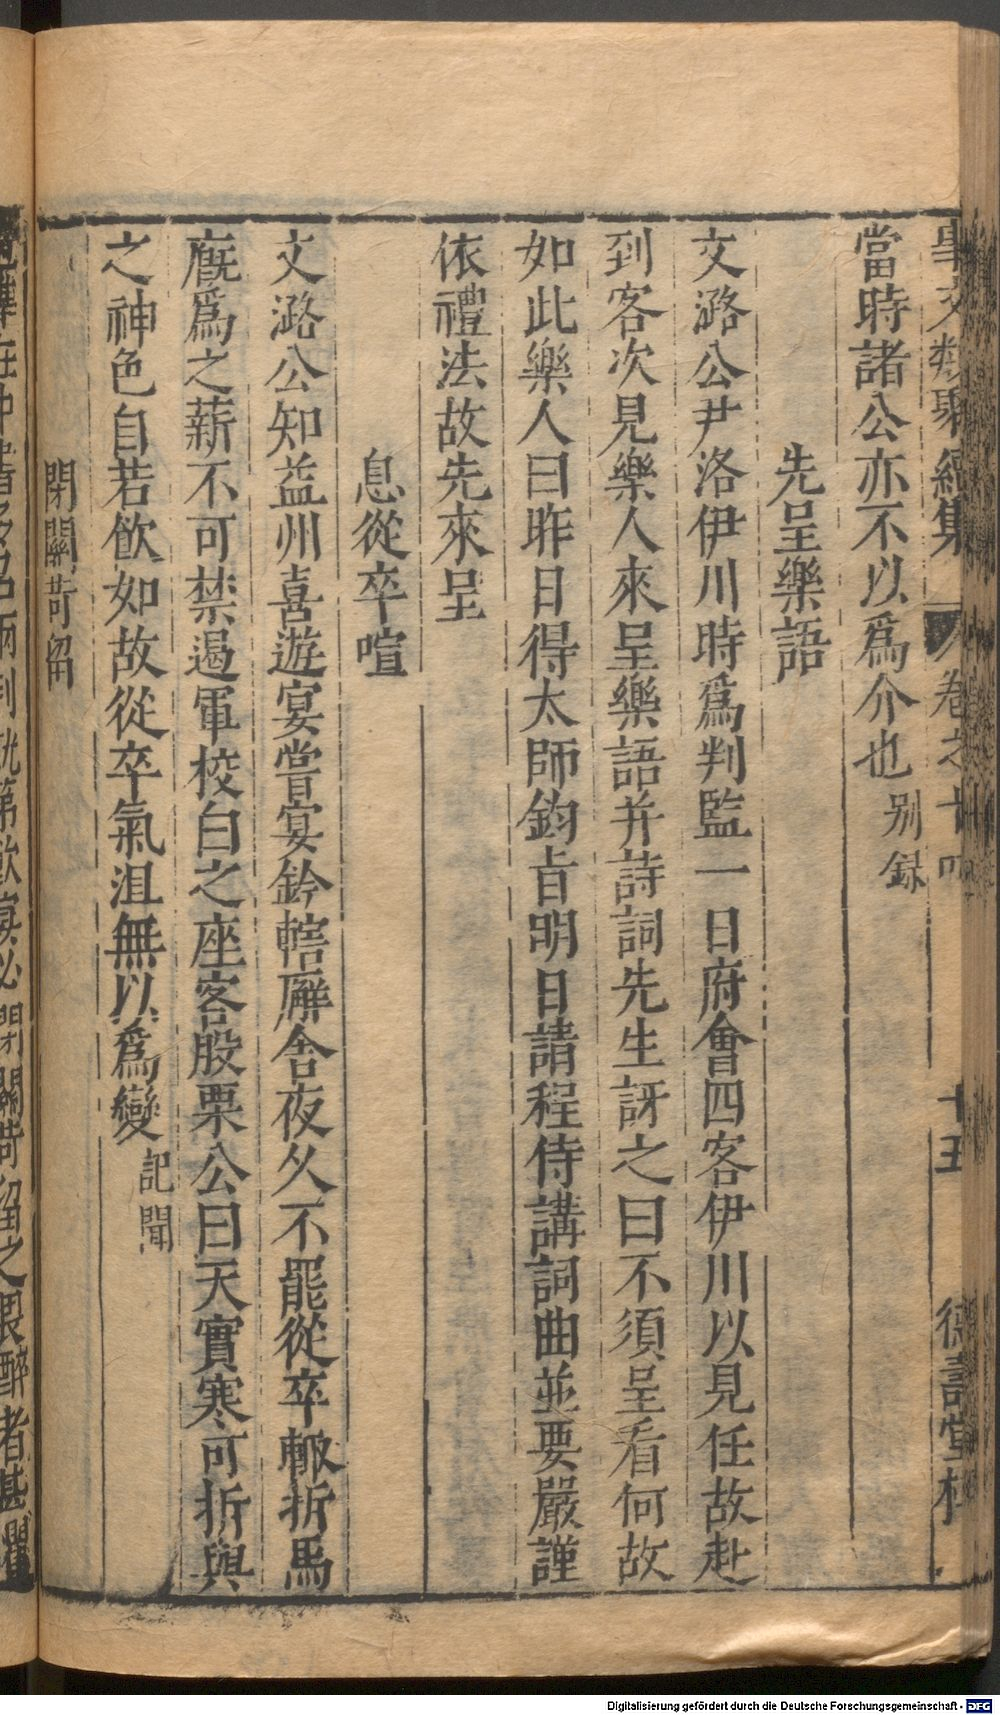 事文類聚續集 卷之十四 十五 德壽堂梓
當時諸公亦不以爲介也 別録
先呈樂語
文潞公尹洛伊川時爲判監一日府會四客伊川以見任故赴
到客次見樂人來呈樂語并詩詞先生訝之曰不須呈看何故
如此樂人曰昨日得太師鈞旨明日請程侍講詞曲並要嚴謹
依禮法故先來呈
息從卒喧
文潞公知益州喜遊宴嘗宴鈐轄廨舍夜久不罷從卒輙拆馬
廐爲之薪不可禁遏軍校白之座客股栗公曰天實寒可拆與
之神色自若飲如故從卒氣沮無以爲變 記聞
閉關苛留
在中書多召兩制就第飲宴必閉關苛留之畏醉者甚懼
Digitalisierung gefördert durch die Deutsche Forschungsgemeinschaft - DFG